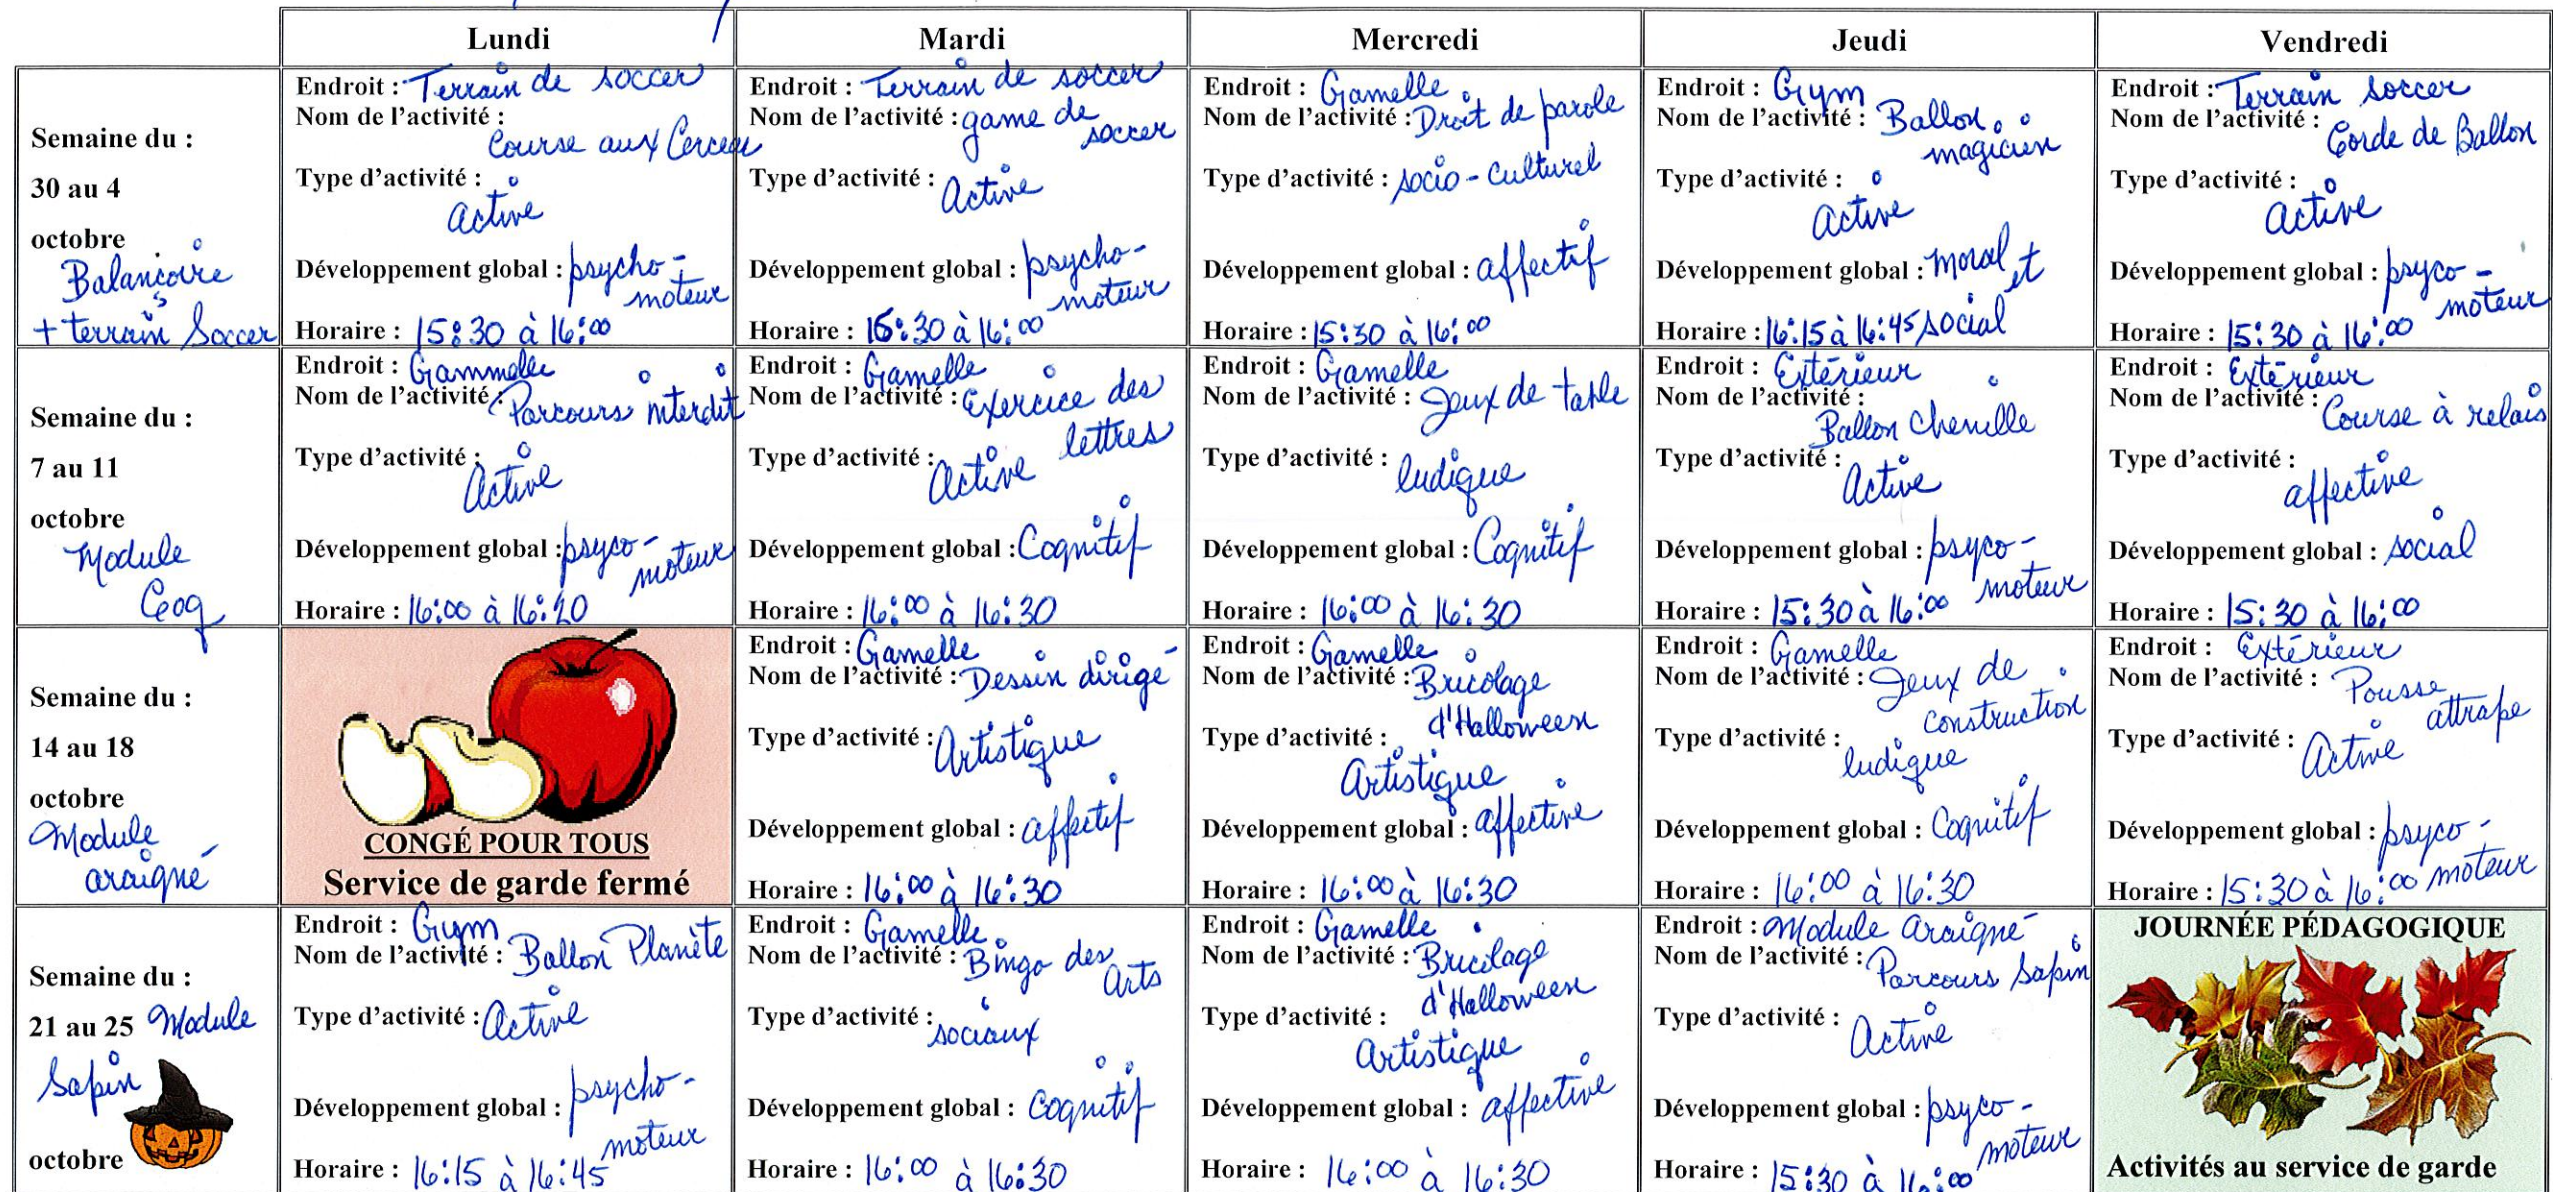 Lundi Mardi Mercredi Jeudi Vendredi
Semaine du :
30 au 4
octobre
Balançoires
+ terrain Soccer
Endroit : Terrain de soccer
Nom de l'activité :
Course aux Cerceau
Type d'activité :
Active
Développement global : psycho-
moteur
Horaire : 15:30 à 16:00
Endroit : Terrain de soccer
Nom de l'activité : game de
soccer
Type d'activité :
Active
Développement global : psycho-
moteur
Horaire : 15:30 à 16:00
Endroit : Gamelle
Nom de l'activité : Droit de parole
Type d'activité : socio-culturel
Développement global : affectif
Horaire : 15:30 à 16:00
Endroit : Gym
Nom de l'activité : Ballon
magicien
Type d'activité :
Active
Développement global : moral et
Horaire : 16:15 à 16:45 social
Endroit : Terrain soccer
Nom de l'activité :
Corde de Ballon
Type d'activité :
Active
Développement global : psyco-
moteur
Horaire : 15:30 à 16:00
Semaine du :
7 au 11
octobre
Module
Coq
Endroit : Gammelle
Nom de l'activité :
Parcours interdit
Type d'activité :
Active
Développement global : psyco-
moteur
Horaire : 16:00 à 16:20
Endroit : Gamelle
Nom de l'activité : Exercice des
lettres
Type d'activité :
Active
Développement global : Cognitif
Horaire : 16:00 à 16:30
Endroit : Gamelle
Nom de l'activité : Jeux de table
Type d'activité :
ludique
Développement global : Cognitif
Horaire : 16:00 à 16:30
Endroit : Extérieur
Nom de l'activité :
Ballon chenille
Type d'activité :
Active
Développement global : psyco-
moteur
Horaire : 15:30 à 16:00
Endroit : Extérieur
Nom de l'activité :
Course à relais
Type d'activité :
affective
Développement global : social
Horaire : 15:30 à 16:00
Semaine du :
14 au 18
octobre
Module
araigné
CONGÉ POUR TOUS
Service de garde fermé
Endroit : Gamelle
Nom de l'activité : Dessin dirigé
Type d'activité :
Artistique
Développement global : affectif
Horaire : 16:00 à 16:30
Endroit : Gamelle
Nom de l'activité : Bricolage
d'Halloween
Type d'activité :
Artistique
Développement global : affective
Horaire : 16:00 à 16:30
Endroit : Gamelle
Nom de l'activité : Jeux de
construction
Type d'activité :
ludique
Développement global : Cognitif
Horaire : 16:00 à 16:30
Endroit : Extérieur
Nom de l'activité : Pousse
attrape
Type d'activité :
Active
Développement global : psyco-
moteur
Horaire : 15:30 à 16:00
Semaine du :
21 au 25 Module
Sapin
octobre
Endroit : Gym
Nom de l'activité : Ballon Planète
Type d'activité : Active
Développement global : psycho-
moteur
Horaire : 16:15 à 16:45
Endroit : Gamelle
Nom de l'activité : Bingo des
Arts
Type d'activité :
sociaux
Développement global : cognitif
Horaire : 16:00 à 16:30
Endroit : Gamelle
Nom de l'activité : Bricolage
d'Halloween
Type d'activité :
Artistique
Développement global : affective
Horaire : 16:00 à 16:30
Endroit : Module araigné
Nom de l'activité :
Parcours Sapin
Type d'activité :
Active
Développement global : psyco-
moteur
Horaire : 15:30 à 16:00
JOURNÉE PÉDAGOGIQUE
Activités au service de garde